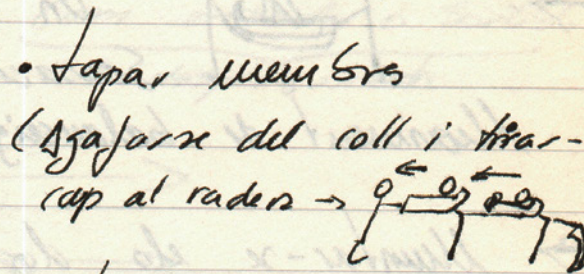 • tapar membres
(Agafarse del coll i tirar-
cap al radera →